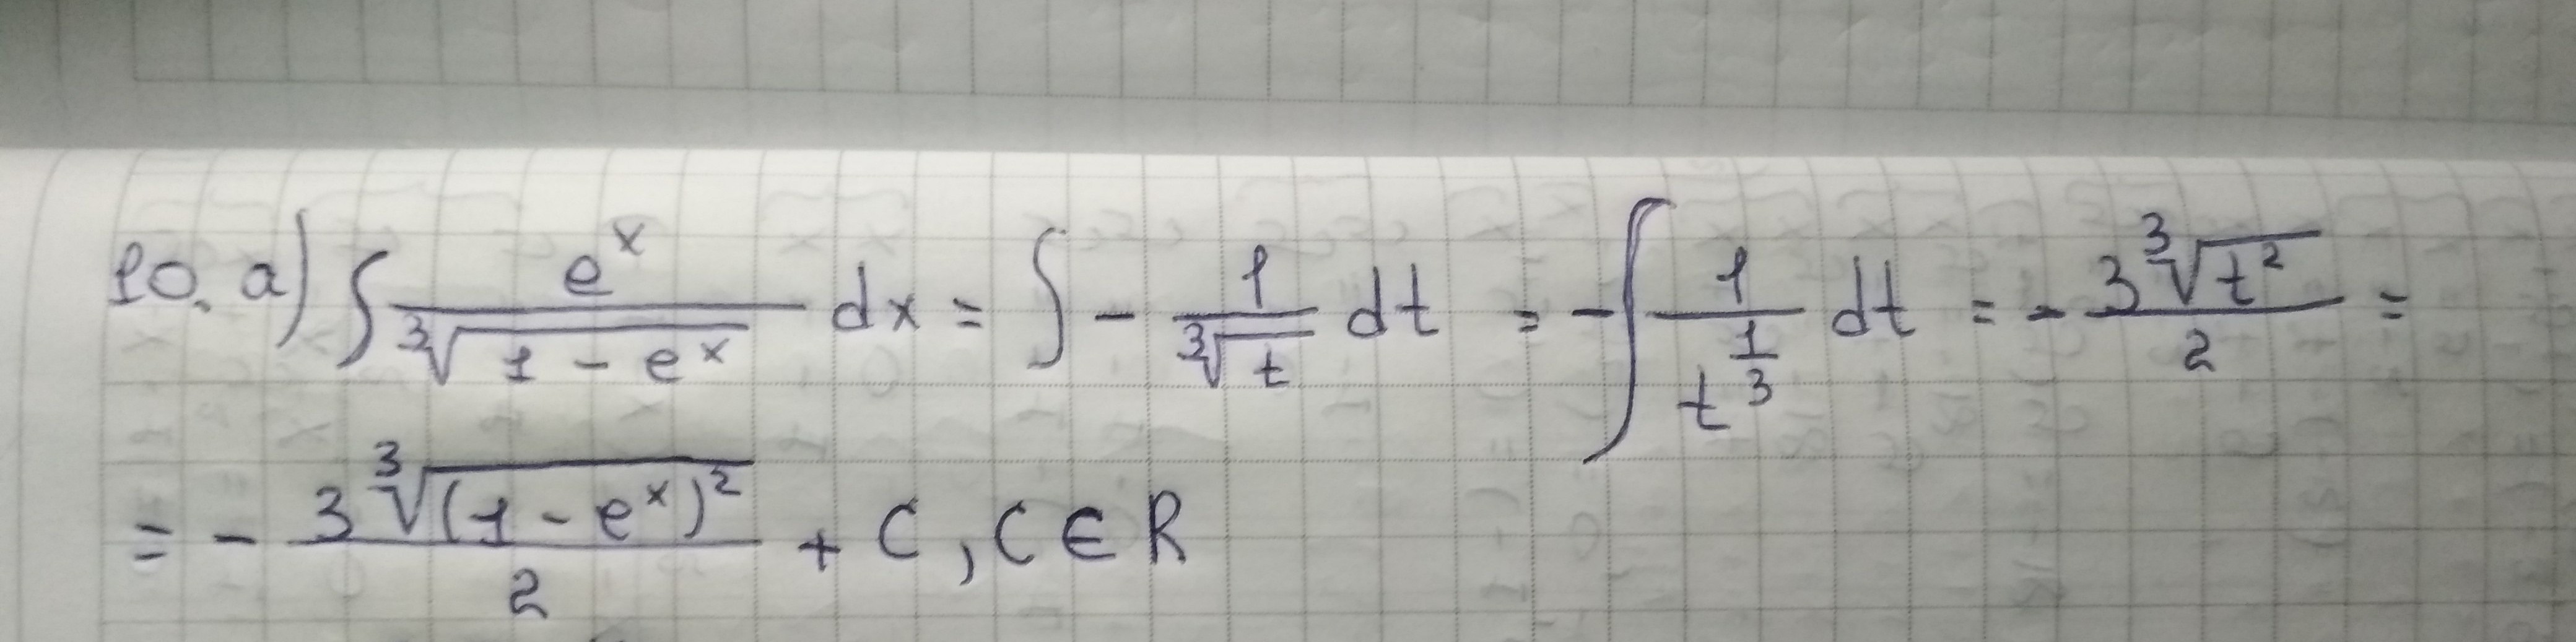 10. a) ∫ e^x / ∛(1 - e^x) dx = ∫ - 1/∛t dt = - ∫ 1/t^(1/3) dt = - 3∛(t^2) / 2 =
= - 3∛((1 - e^x)^2) / 2 + C, C ∈ R